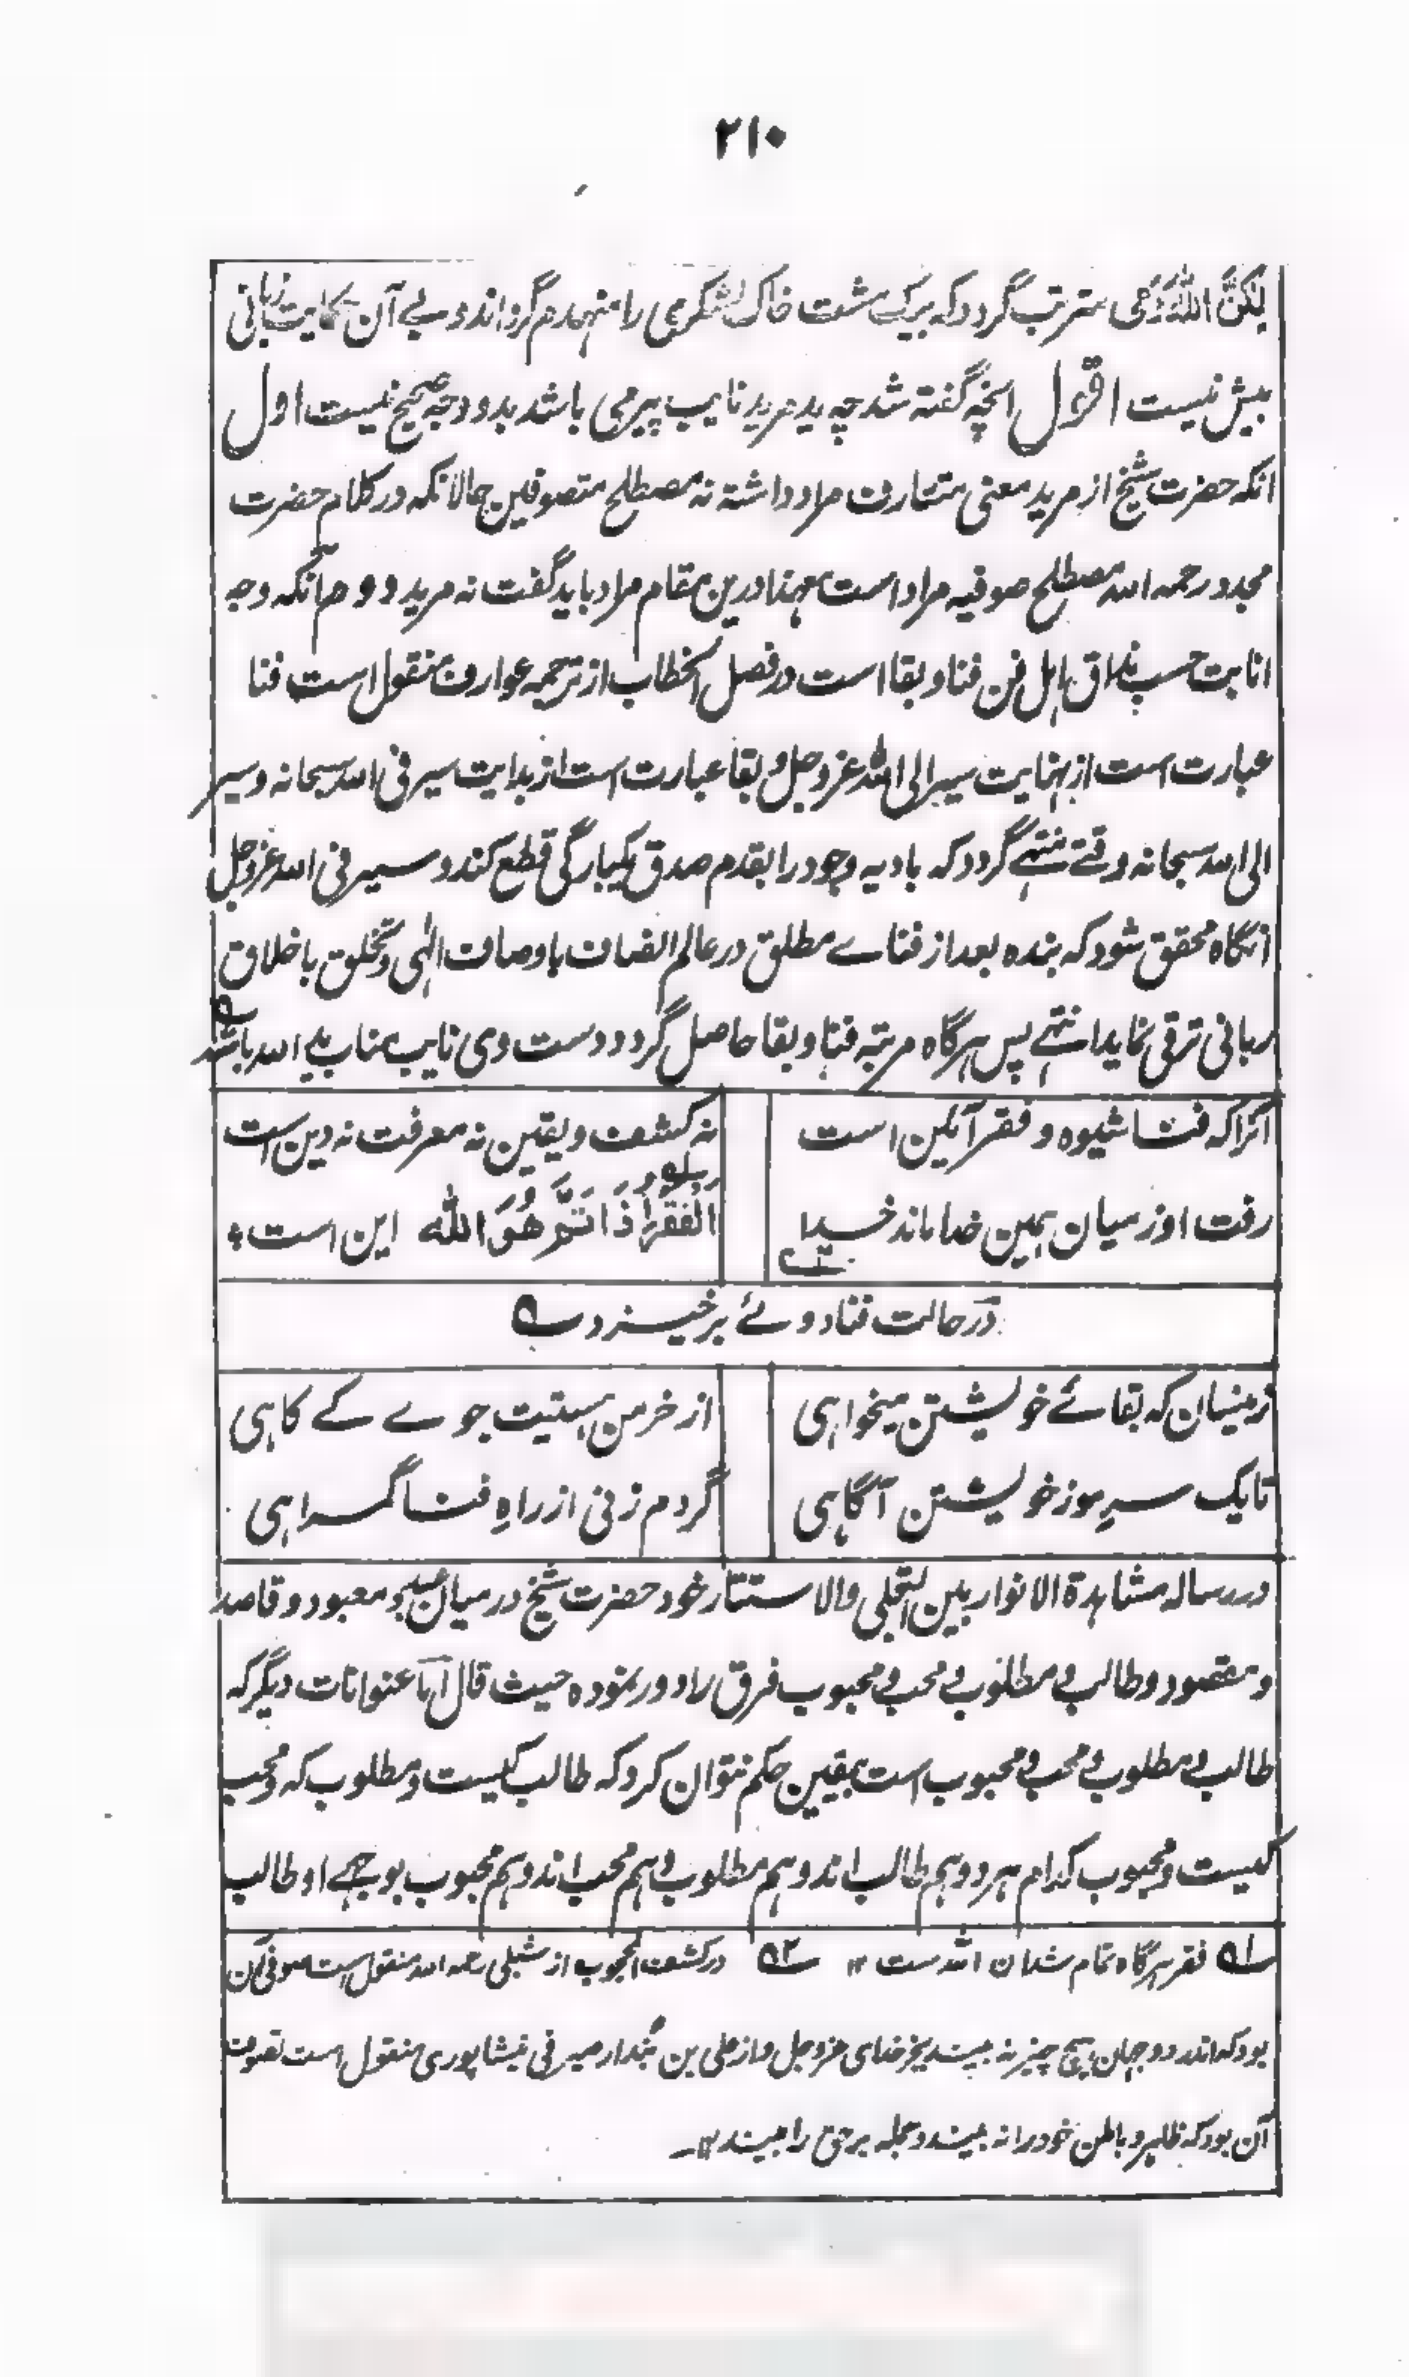 ۲۱۰
لٰکِنَّ اللّٰهَ رَمٰی مترتب گردد که بیک مشت خاک لشکری را منهدم گرداند و بے آن حکایت زبانی
بیش نیست اقول انچه گفته شد چه ید مرید نایب پیر می باشد بدو وجه صحیح نیست اول
انکه حضرت شیخ از مرید معنی متعارف مراد داشته نه مصطلح متصوفین حالانکه در کلام حضرت
مجدد رحمه الله مصطلح صوفیه مراد است معهذا درین مقام مراد باید گفت نه مرید دوم آنکه وجه
انابت حسب مذاق اهل فن فنا و بقا است در فصل الخطاب از ترجمه عوارف منقول است فنا
عبارت است از نهایت سیر الی الله عزوجل و بقا عبارت است از بدایت سیر فی الله سبحانه و سیر
الی الله سبحانه وقتے منتهے گردد که بادیه وجود را بقدم صدق یکبارگی قطع کند و سیر فی الله عزوجل
انگاه محقق شود که بنده بعد از فناے مطلق در عالم اتصاف باوصاف الٰهی و تخلق باخلاق
ربانی ترقی نماید انتهے پس هرگاه مرتبه فنا و بقا حاصل گردد دست وی نایب مناب ید الله باشد
آنرا که فنا شیوه و فقر آئین است نه کشف و یقین نه معرفت نه دین است
رفت او ز میان همین خدا ماند خدا اَلْفَقْرُ اِذَا تَمَّ هُوَ اللّٰه این است
در حالت فنا دوئے برخیزد
زینسان که بقائے خویشتن میخواهی از خرمن هستیت جوے کے کاهی
تا یک سر موز خویشتن آگاهی گر دم زنی از راهِ فنا گمراهی
در رساله مشاهدة الانوار بین التجلی والاستتار خود حضرت شیخ در میان عبد و معبود و قاصد
و مقصود و طالب و مطلوب و محب و محبوب فرق را دور نموده حیث قال اما عنوانات دیگر که
طالب و مطلوب و محب و محبوب است بیقین حکم نتوان کرد که طالب کیست و مطلوب که و محب
کیست و محبوب کدام هر دو هم طالب اند و هم مطلوب و هم محب اند و هم محبوب بوجهے او طالب
۱ فقر هرگاه تمام شد آن الله ست ۱۲ ۲ در کشف المحجوب از شبلی رحمه الله منقول است صوفی آن
بود که اندر دو جهان هیچ چیز نه بیند بجز خدای عزوجل و از علی بن بندار صیرفی نیشاپوری منقول است تصوف
آن بود که ظاهر و باطن خود را نه بیند و جمله مر حق را بیند ۱۲